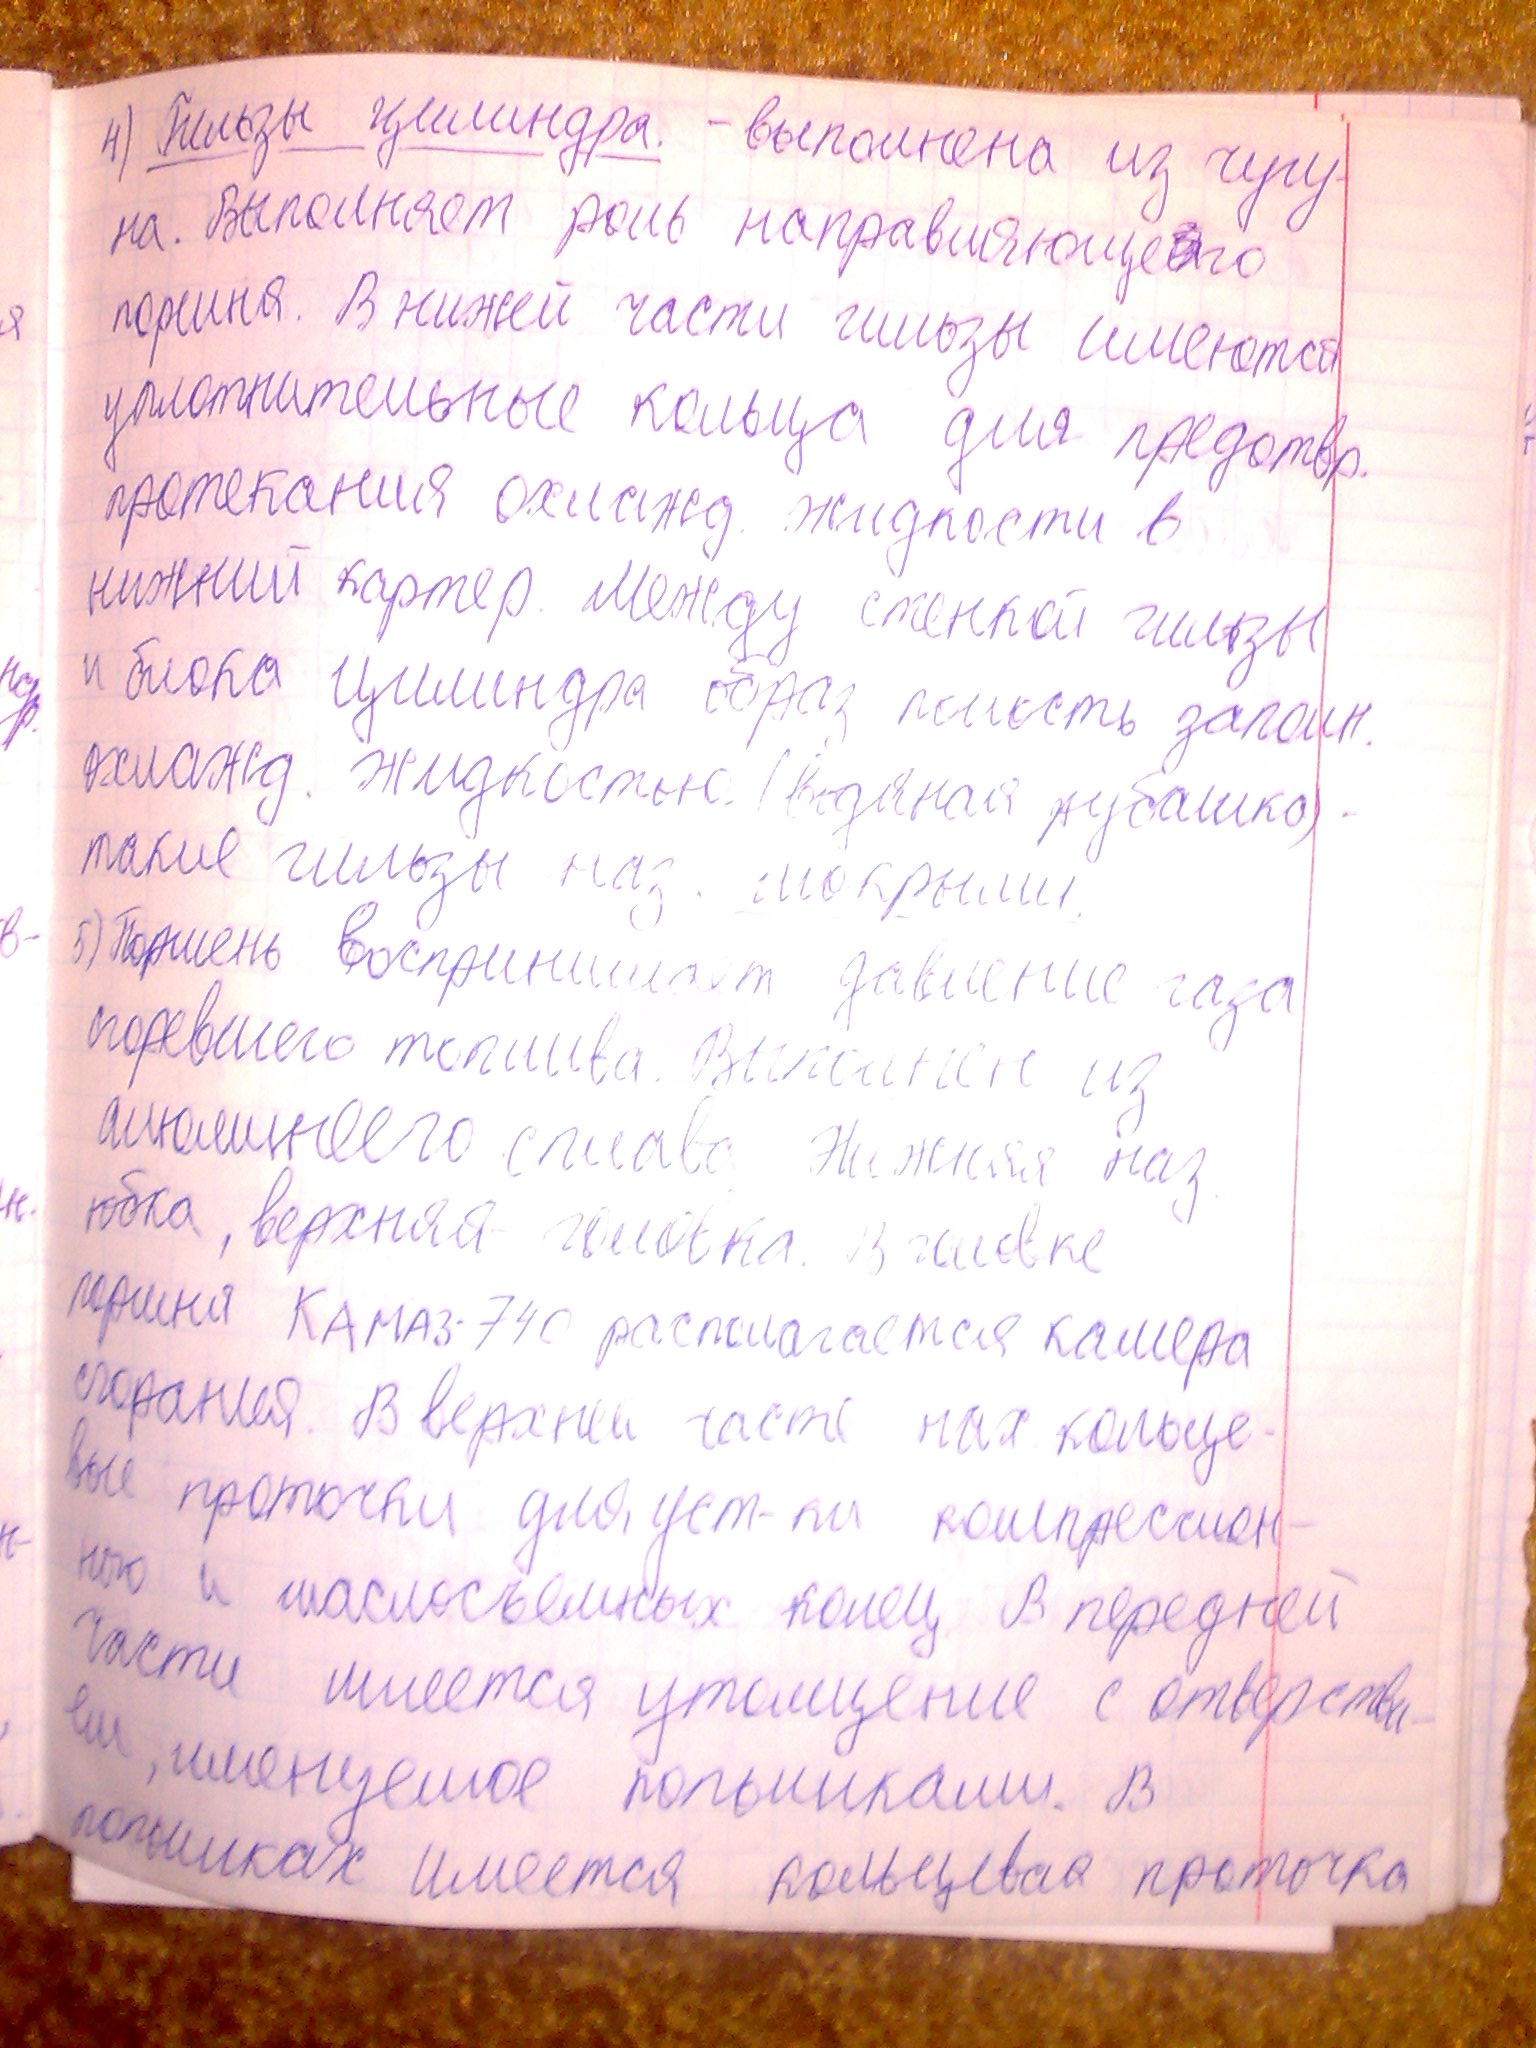 4) Гильзы цилиндра. - выполнена из чугу-
на. Выполняет роль направляющего
поршня. В нижней части гильзы имеются
уплотнительные кольца для предотвр.
протекания охлажд. жидкости в
нижний картер. Между стенкой гильзы
и блока цилиндра образ полость заполн.
охлажд. жидкостью. (водяная рубашка) -
такие гильзы наз. мокрыми.
5) Поршень воспринимает давление газа
сгоревшего топлива. Выполнен из
алюминеего сплава. Нижняя наз.
юбка, верхняя - головка. В головке
поршня КАМАЗ-740 располагается камера
сгорания. В верхней часте нах. кольце-
вые проточки для уст-ки компрессион-
ного и маслосъемных колец. В передней
части имеется утолщение с отверстви-
ем, именуемое
имеется кольцевая проточка
я
в-
н-